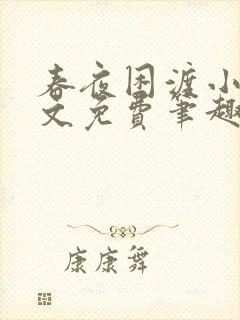 春夜困渡小
文免费笔趣
康康舞